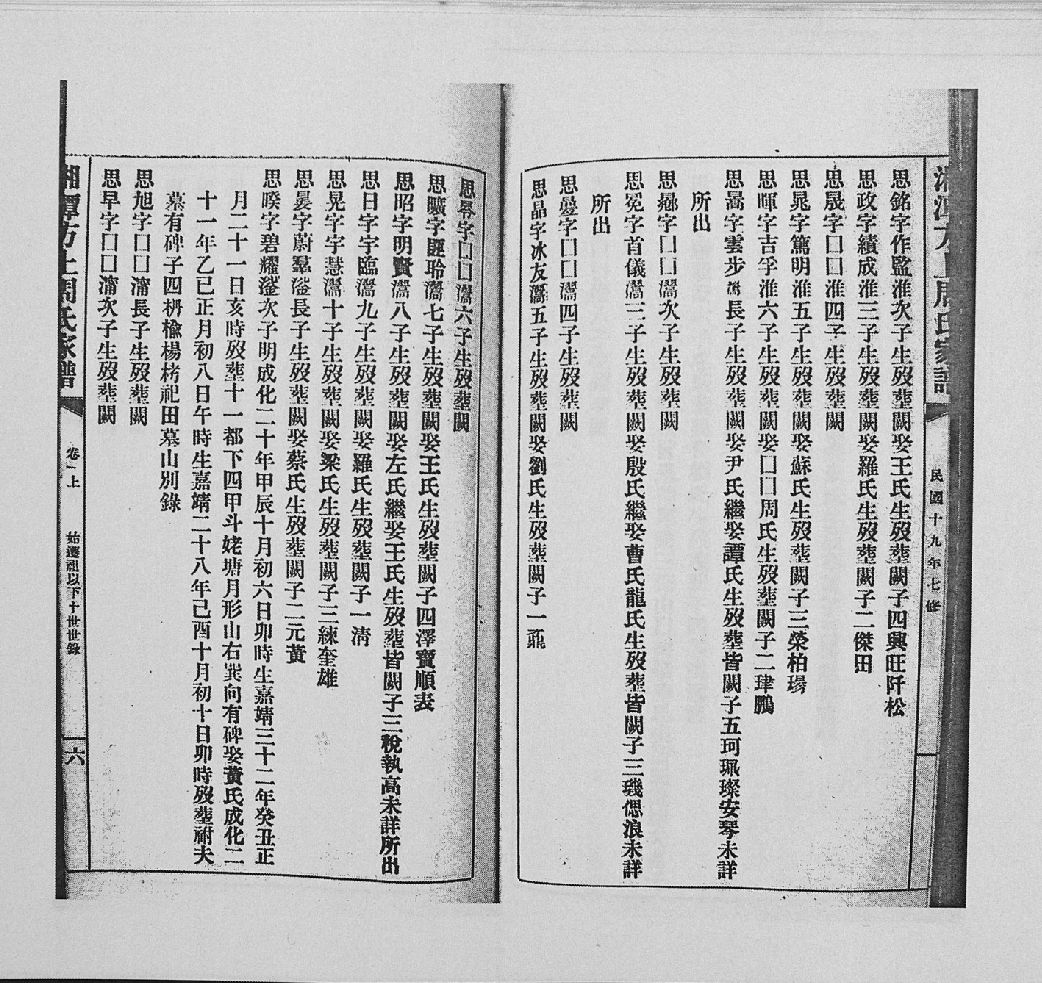 民國十九年七修
思銘字作監淮次子生歿塟闕娶王氏生歿塟闕子四興旺阡松
思政字績成淮三子生歿塟闕娶羅氏生歿塟闕子二傑田
思晟字囗囗淮四子生歿塟闕
思晁字篤明淮五子生歿塟闕娶蘇氏生歿塟闕子三榮柏瑒
思暉字吉孚淮六子生歿塟闕娶囗囗周氏生歿塟闕子二珒鵬
思暠字雲步長子生歿塟闕娶尹氏繼娶譚氏生歿塟皆闕子五珂珮璨安琴未詳
所出
思字囗囗灊次子生歿塟闕
思冕字首儀灊三子生歿塟闕娶殷氏繼娶曹氏龍氏生歿塟皆闕子三璣偲浪未詳
所出
思字囗囗灊四子生歿塟闕
思晶字冰友灊五子生歿塟闕娶劉氏生歿塟闕子一
思字囗囗灊六子生歿塟闕
思曠字聆灊七子生歿塟闕娶王氏生歿塟闕子四澤寶順表
思昭字明賢灊八子生歿塟闕娶左氏繼娶王氏生歿塟皆闕子三稅執高未詳所出
思日字宇臨灊九子生歿塟闕娶羅氏生歿塟闕子一清
思晃字宇慧灊十子生歿塟闕娶梁氏生歿塟闕子三練奎雄
思字蔚長子生歿塟闕娶蔡氏生歿塟闕子二元黃
思暌字碧耀次子明成化二十年甲辰十月初六日卯時生嘉靖三十二年癸丑正
月二十一日亥時歿塟十一都下四甲斗姥塘月形山右巽向有碑娶黃氏成化二
十一年乙巳正月初八日午時生嘉靖二十八年己酉十月初十日卯時歿塟祔夫
墓有碑子四楡楊祀田墓山別錄
思旭字囗囗長子生歿塟闕
思早字囗囗次子生歿塟闕
湘潭方上周氏家譜
卷一上
始遷祖以下十世世錄
六